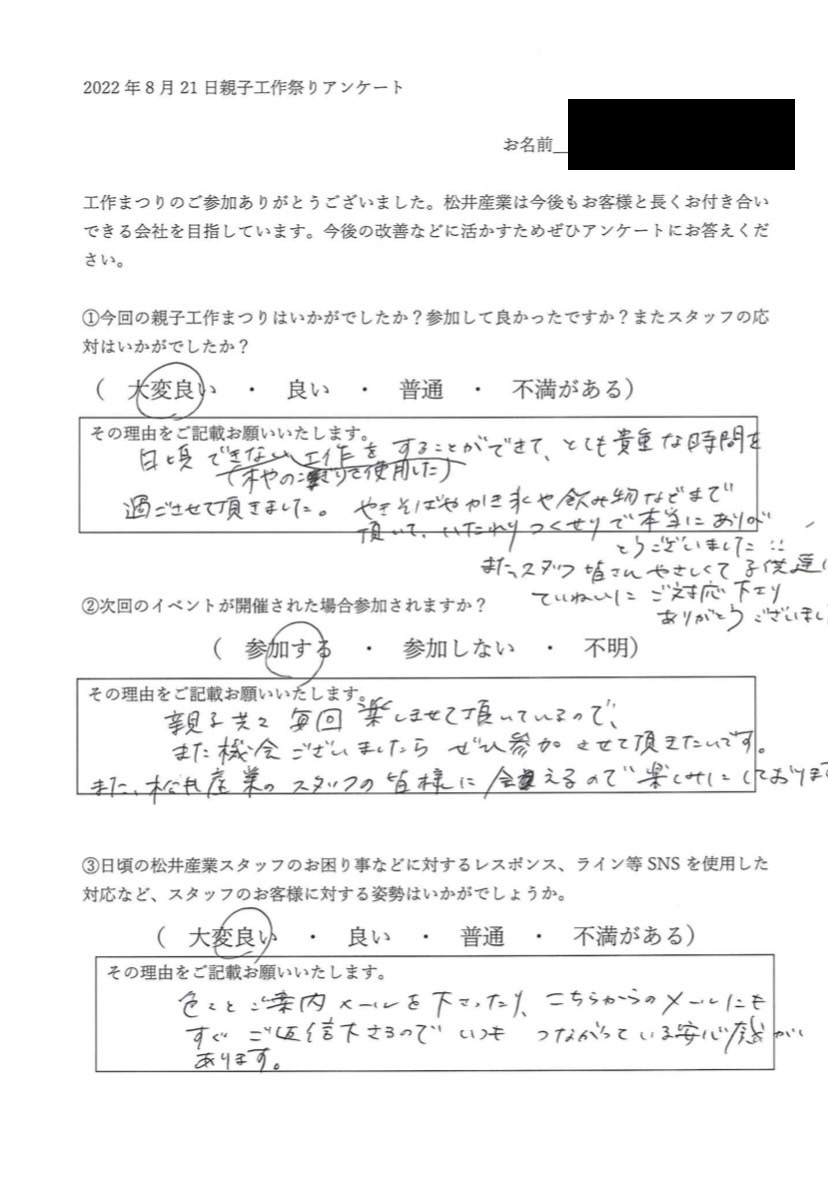 2022年8月21日親子工作祭りアンケート
お名前
工作まつりのご参加ありがとうございました。松井産業は今後もお客様と長くお付き合い
できる会社を目指しています。今後の改善などに活かすためぜひアンケートにお答えくだ
さい。
①今回の親子工作まつりはいかがでしたか？参加して良かったですか？またスタッフの応
対はいかがでしたか？
（ 大変良い ・ 良い ・ 普通 ・ 不満がある）
その理由をご記載お願いいたします。
日頃できない工作をすることができて、とても貴重な時間を
（木やのこぎりを使用した）
過ごさせて頂きました。やきそばやかき氷や飲み物などまで
頂いて、いたれりつくせりで本当にありが
とうございました!!
また、スタッフ皆さんやさしくて子供達に
ていねいにご対応下さり
ありがとうございまし
②次回のイベントが開催された場合参加されますか？
（ 参加する ・ 参加しない ・ 不明）
その理由をご記載お願いいたします。
親子共々毎回楽しませて頂いているので、
また機会ございましたらぜひ参加させて頂きたいです。
また、松井産業のスタッフの皆様に会えるので楽しみにしております
③日頃の松井産業スタッフのお困り事などに対するレスポンス、ライン等SNSを使用した
対応など、スタッフのお客様に対する姿勢はいかがでしょうか。
（ 大変良い ・ 良い ・ 普通 ・ 不満がある）
その理由をご記載お願いいたします。
色々とご案内メールを下さったり、こちらからのメールにも
すぐご返信下さるのでいつもつながっている安心感が
あります。